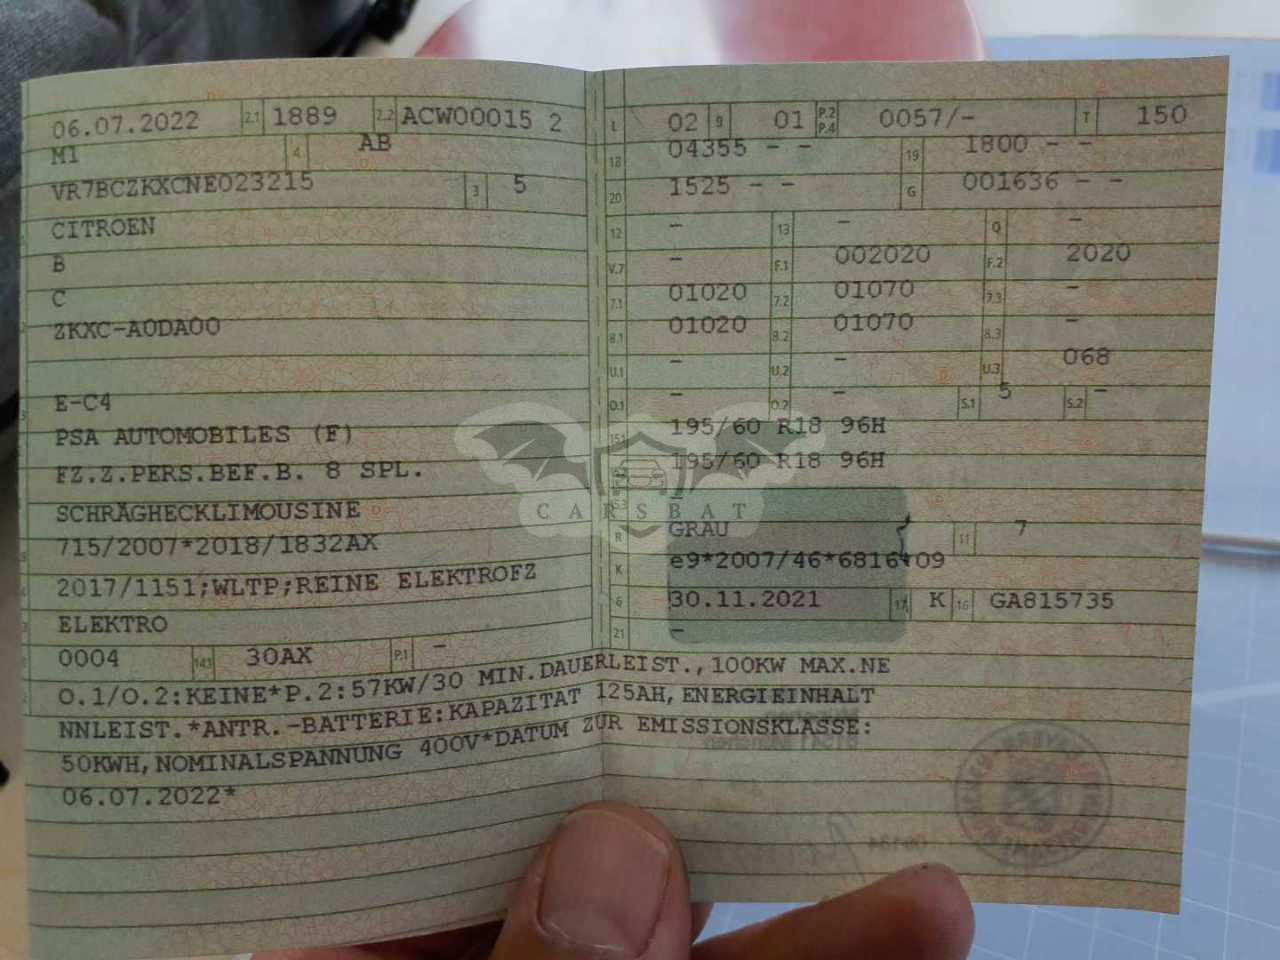 06.07.2022 2.1 1889 2.2 ACW00015 2
M1 4 AB
VR7BCZKXCNE023215 3 5
CITROEN
B
C
ZKXC-A0DA00
E-C4
PSA AUTOMOBILES (F)
FZ.Z.PERS.BEF.B. 8 SPL.
SCHRÄGHECKLIMOUSINE
715/2007*2018/1832AX
2017/1151;WLTP;REINE ELEKTROFZ
ELEKTRO
0004 14.1 30AX P.1 -
L 02 9 01 P.2 P.4 0057/- T 150
18 04355 - - 19 1800 - -
20 1525 - - G 001636 - -
12 - 13 - Q -
V.7 - F.1 002020 F.2 2020
7.1 01020 7.2 01070 7.3 -
8.1 01020 8.2 01070 8.3 -
U.1 - U.2 - U.3 068
O.1 - O.2 - S.1 5 S.2 -
15.1 195/60 R18 96H
195/60 R18 96H
-
R GRAU 11 7
K e9*2007/46*6816*09
6 30.11.2021 17 K 16 GA815735
21 -
O.1/O.2:KEINE*P.2:57KW/30 MIN.DAUERLEIST.,100KW MAX.NE
NNLEIST.*ANTR.-BATTERIE:KAPAZITAT 125AH,ENERGIEINHALT
50KWH,NOMINALSPANNUNG 400V*DATUM ZUR EMISSIONSKLASSE:
06.07.2022*
CARSBAT